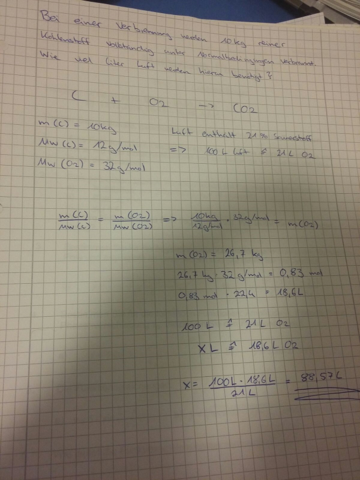 Bei einer Verbrennung werden 10 kg reiner
Kohlenstoff vollständig unter Normalbedingungen verbrannt.
Wie viel Liter Luft werden hierzu benötigt?
C + O2 -> CO2
m(C) = 10kg
Luft enthält 21% Sauerstoff
Mw(C) = 12g/mol
=> 100L Luft ≙ 21L O2
Mw(O2) = 32g/mol
m(C)/Mw(C) = m(O2)/Mw(O2) => 10kg/12g/mol · 32g/mol = m(O2)
m(O2) = 26,7 kg
26,7 kg · 32 g/mol = 0,83 mol
0,83 mol · 22,4 = 18,6L
100 L ≙ 21L O2
X L ≙ 18,6L O2
X = 100L · 18,6L/21L = 88,57L